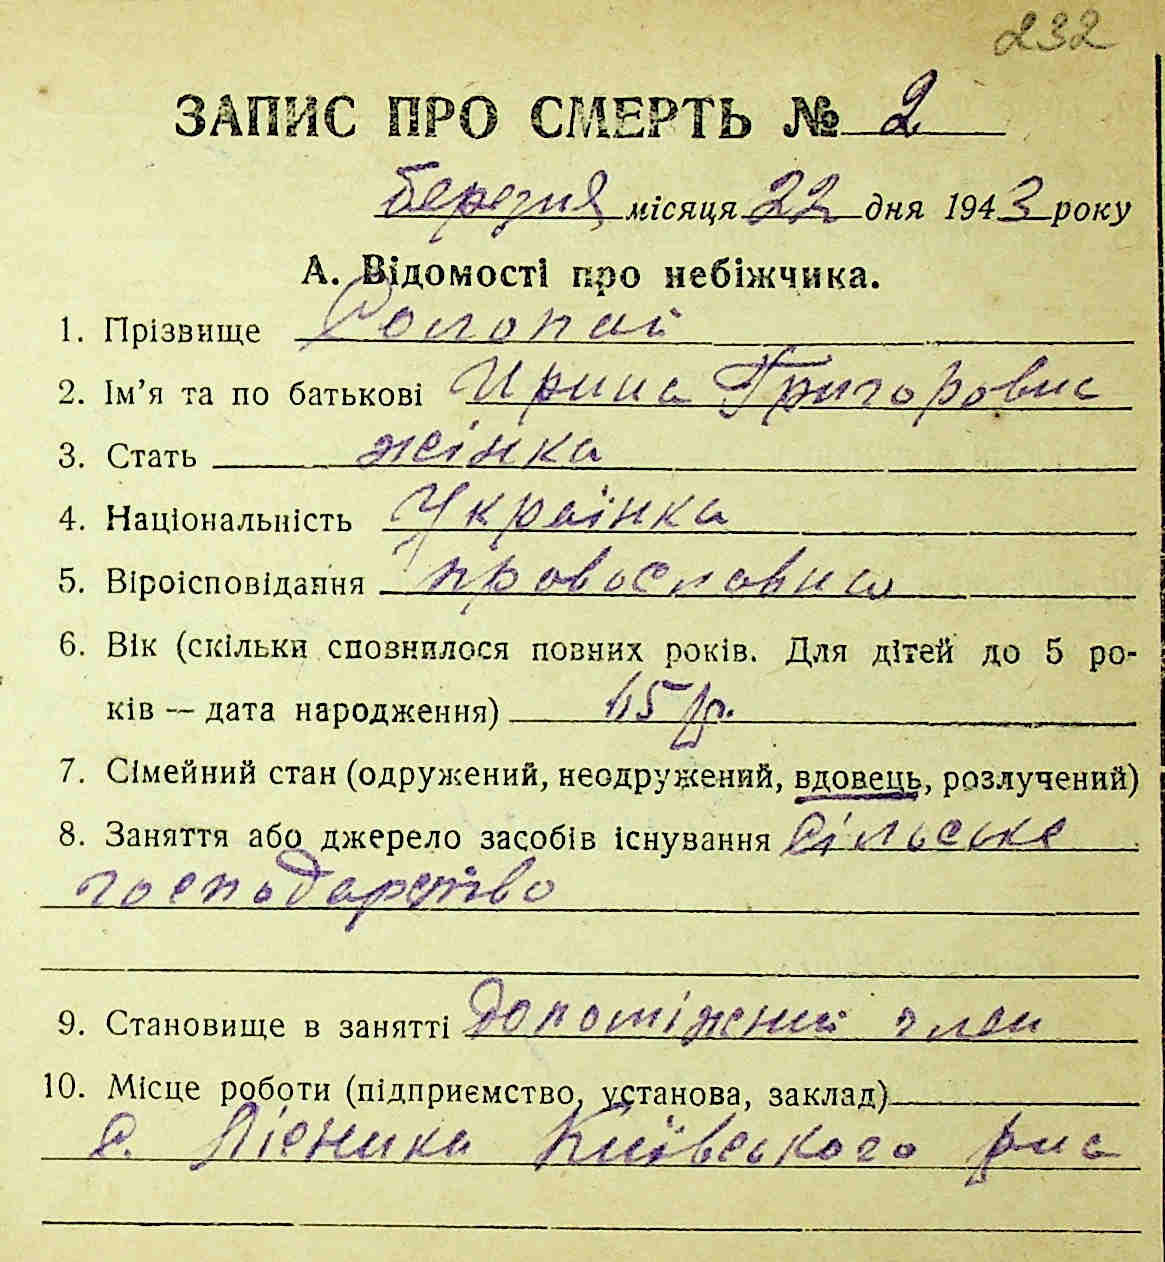 232
ЗАПИС ПРО СМЕРТЬ № 2
березня місяця 22 дня 1943 року
А. Відомості про небіжчика.
1. Прізвище Солопай
2. Ім'я та по батькові Ирина Григоровна
3. Стать жінка
4. Національність Українка
5. Віроісповідання провословна
6. Вік (скільки сповнилося повних років. Для дітей до 5 ро-
ків — дата народження) р.
7. Сімейний стан (одружений, неодружений, вдовець, розлучений)
8. Заняття або джерело засобів існування Сільське
господарство
9. Становище в занятті допоміжний член
10. Місце роботи (підприємство, установа, заклад)
с. Лісники Київського